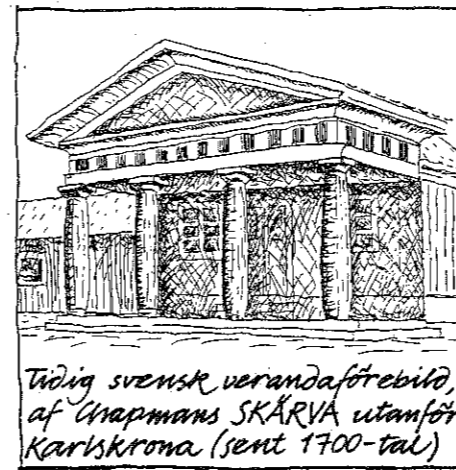 Tidig svensk verandaförebild,
af Chapmans SKÄRVA utanför
Karlskrona (sent 1700-tal)